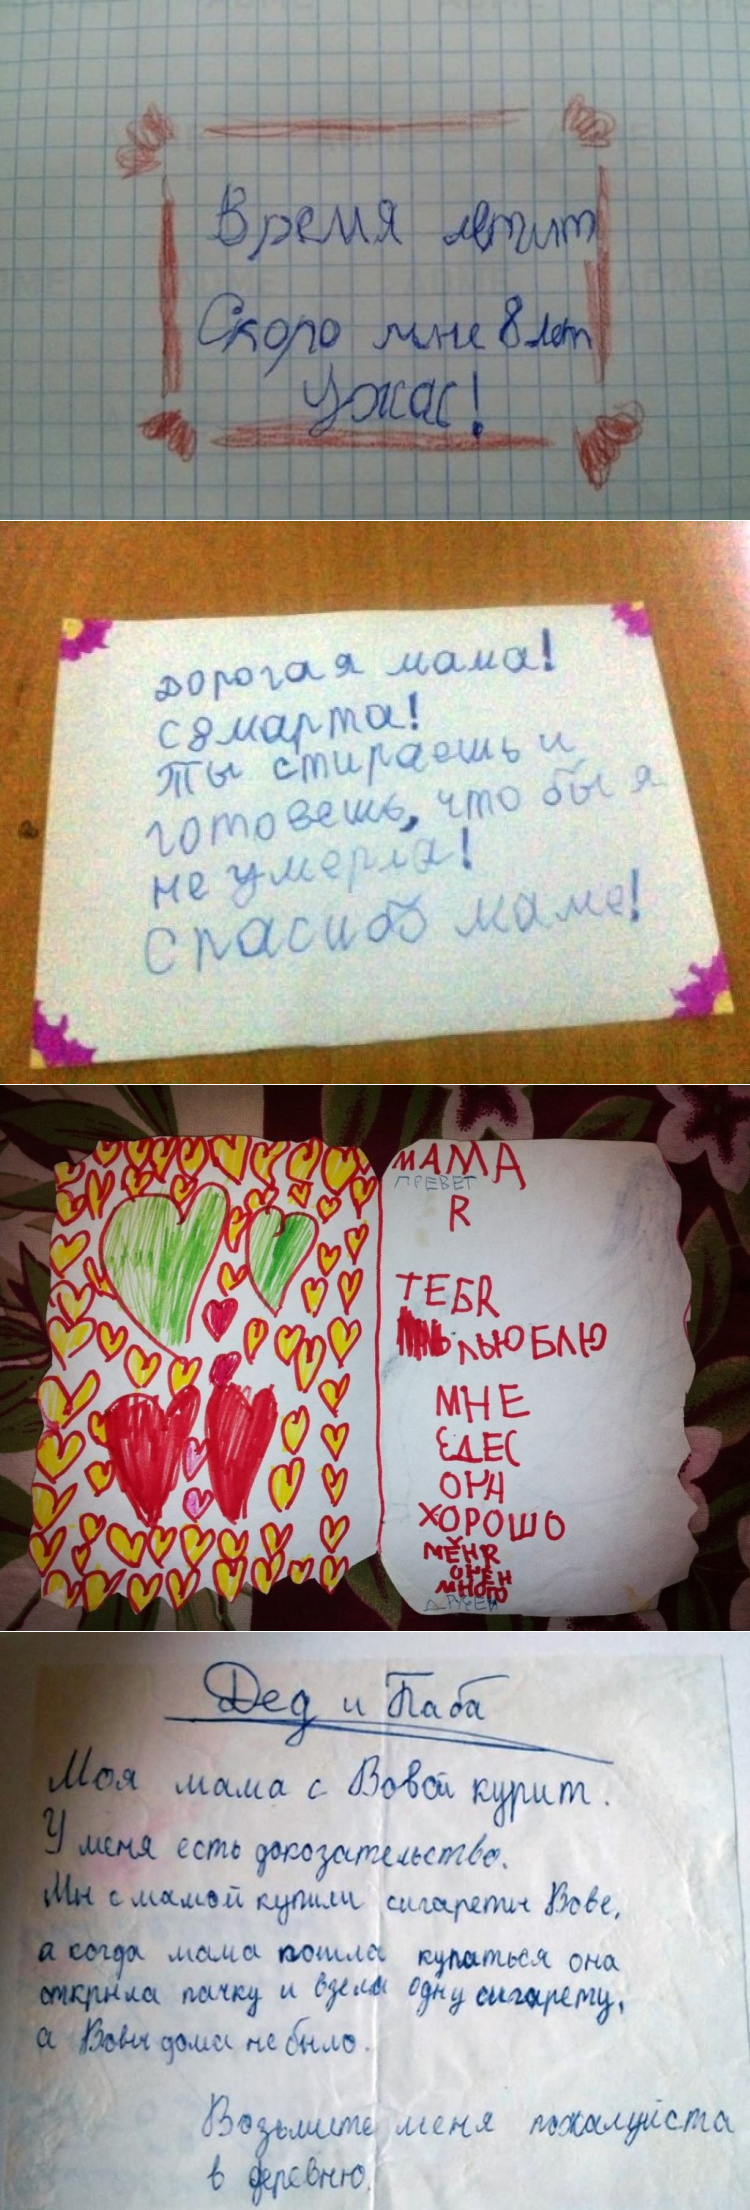 Время летит
Скоро мне 8 лет
Ужас!
дорогая мама!
С 8 марта!
Ты стираешь и
готовешь, что бы я
не умерла!
Спасибо маме!
МАМА
ПРЕВЕТ
Я
ТЕБЯ
ЛЬЮБЛЮ
МНЕ
ЕДЕС
ОЧН
ХОРОШО
МЕНЯ
ОЧЕН
МНОГО
ДРУЗЕЙ
Дед и Баба
Моя мама с Вовой курит.
У меня есть докозательство.
Мы с мамой купили сигареты Вове,
а когда мама пошла купаться она
открыла пачку и взела одну сигарету,
а Вовы дома не было.
Возьмите меня пожалуйста
в деревню.